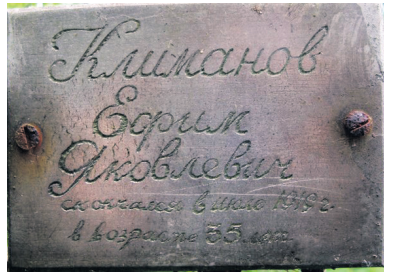 Климанов
Ефрим
Яковлевич
скончался в июле 1919 г.
в возрасте 35 лет